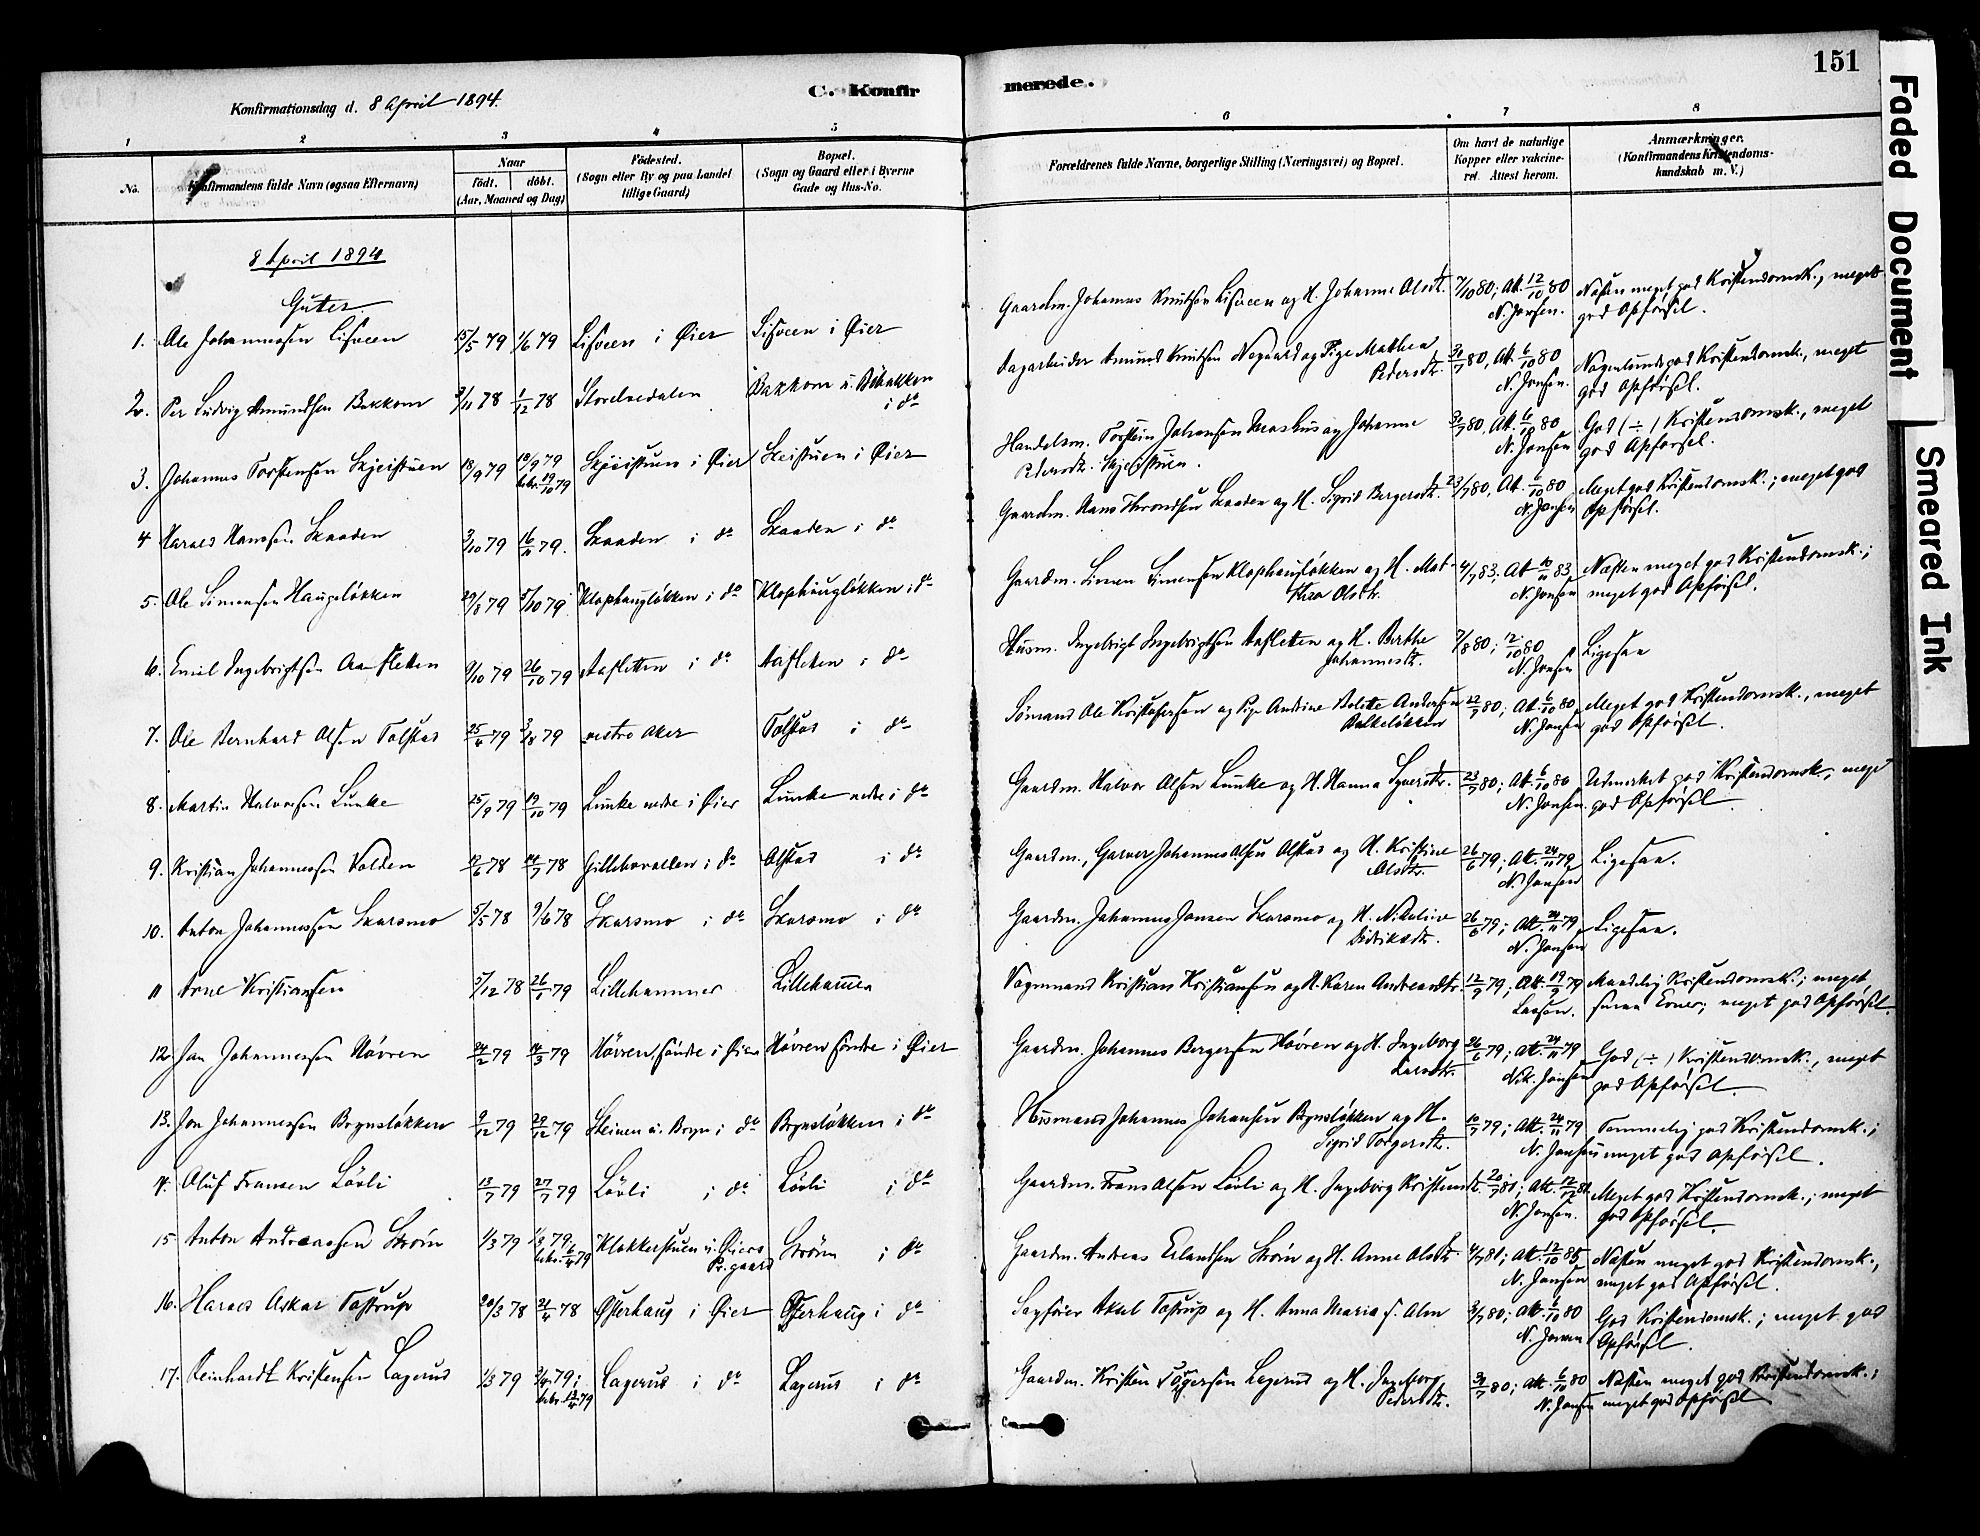 151
C. Konfirmerede.
Konfirmationsdag d. 8 April 1894.
1
2
3
4
5
6
7
8
No.
Konfirmandens fulde Navn (ogsaa Efternavn)
Naar
födt. döbt.
(Aar, Maaned og Dag)
Födested.
(Sogn eller By og paa Landet
tillige Gaard)
Bopæl.
(Sogn og Gaard eller i Byerne
Gade og Hus-No.
Forældrenes fulde Navne, borgerlige Stilling (Næringsvei) og Bopæl.
Om havt de naturlige
Kopper eller vakcine-
ret. Attest herom.
Anmærkninger.
(Konfirmandens Kristendoms-
kundskab m. V.)
8 April 1894
Gutter
1. Ole Johannessen Lisveen 15/5 79 1/6 79 Lisveen i Öier Lisveen i Öier Gaardm. Johannes Knutsen Lisveen og H. Johanne Olsdtr. 7/10 80; Att. 12/10 80 N. Jonsen. Næsten meget god Kristendomsk., meget god Opförsel.
2. Per Ludvig Amundsen Bakkom 1/12 78 Storelvedalen Bakkom i do Dagarbeider Amund Knutsen og Pige Mathea Pedersdtr. Att. 6/10 80 N. Jonsen. Nogenlunde god Kristendomsk., meget god Opförsel.
3. Johannes Torstensen Skjeistuen 18/9 79 Skjeistuen i Öier Skeistuen i Öier Handelsm. Torstein Johansen og Johanne Pedersdtr. Skjeistuen. Att. 6/10 80 N. Jonsen God (÷) Kristendomsk., meget god Opförsel.
4 Harald Hanssen Skaaden 3/10 79 16/11 79. Skaaden i do Skaaden i do Gaardm. Hans Throndsen Skaaden og H. Sigrid Bergersdtr. 23/7 80, Att. 6/10 80 N. Jonsen Meget god Kristendomsk.; meget god Opförsel.
5. Ole Simensen Haugelökken 29/8 79 5/10 79 Klophauglökken i do Klophauglökken i do Gaardm. Simen Simensen Klophauglökken og H. Mathea Olsdtr. 4/7 83, Att. 10/11 83, N. Jonsen Næsten meget god Kristendomsk.; meget god Opförsel.
6. Emil Ingebrigtsen Aafletten 9/10 79 26/10 79 Aafletten i do Aafletten i do Husm. Ingebrigt Ingebrigtsen Aafletten og H. Berthe Johannesdtr. 7/8 80; 12/10 80 N. Jonsen Ligesaa
7. Ole Bernhard Olsen Tolstad 25/4 79 3/8 79 vestre Aker Tolstad i do Sömand Ole Kristofersen og Pige Andrine Bolette Andersen Bakkelökken 22/7 80; Att. 6/10 80 N. Jonsen Meget god Kristendomsk., meget god Opförsel.
8. Martin Halvorsen Lunke 25/9 79 19/10 79 Lunke nedre i Öier Lunke nedre i do Gaardm. Halvor Olsen Lunke og H. Hanna Syversdtr. 23/7 80; Att. 6/10 80 N. Jonsen. Udmerket god Kristendomsk., meget god Opförsel
9. Kristian Johannessen Volden 14/7 78 i do Olstad i do Gaardm., Garver Johannes Olsen Olstad og H. Kristine Olsdtr. 26/6 79; Att. 24/11 79, N. Jonsen Ligesaa.
10. Anton Johannessen Skarsmo 5/5 78 9/6 78 Skarsmo i do Skarsmo i do Gaardm. Johannes Jonsen Skarsmo og H. Nikoline Didriksdtr. 26/6 79; Att. 24/11 79, N. Jonsen Ligesaa.
11 Arne Kristiansen 5/12 78 26/1 79 Lillehammer Lillehamer Vognmand Kristian Kristiansen og H. Karen Andreasdtr. 12/9 79; Att. 19/9 79 Larsen. Maadelig Kristendomsk.; meget smaa Evner; meget god Opförsel.
12. Jon Johannessen Hövren 24/2 79 14/3 79 Hövren söndre i Öier Hövren söndre i Öier Gaardm. Johannes Bergersen Hövren og H. Ingeborg Larsdtr. 26/6 79; Att. 24/11 79 Nik. Jonsen God (÷) Kristendomsk., meget god Opförsel
13. Jon Johannessen Brynslökken 9/12 79 29/12 79 Steinen u. Bryn i do Brynslökken i do Husmand Johannes Johansen Brynslökken og H. Sigrid Torgersdtr. 10/7 79; Att. 24/11 79 N. Jonsen Temmelig god Kristendomsk.; meget god Opförsel.
14. Oluf Fransen Lövli 13/7 79 27/7 79 Lövli i do Lövli i do Gaardm. Frans Olsen Lövli og H. Ingeborg Kristensdtr. N. Jonsen. Meget god Kristendomsk.; meget god Opförsel.
15 Anton Andreassen Ström 1/3 79 Klokkerstuen u. Öiers Pr. gaard Ström i do Gaardm. Andreas Erlandsen Ström og H. Anne Olsdtr. N. Jonsen Næsten meget god Kristendomsk., meget god Opförsel.
16. Harald Oskar Tostrup 20/3 78 21/4 78 Osterhaug i Öier Osterhaug i do Sagförer Aksel Tostrup og H. Anna Maria f. Alm Att. 6/10 80 N. Jonsen God Kristendomsk.; meget god Opförsel.
17. Reinhardt Kristensen Lagerud 1/3 79 Lagerud i do Lagerud i do Gaardm. Kristen Lagerud og H. Ingeborg Pedersdtr. Att. 6/10 80 N. Jonsen Næsten meget god Kristendomsk.; meget god Opförsel
Faded Document
Smeared Ink